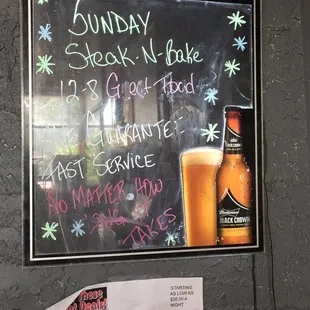 SUNDAY
Steak-N-Bake
12-8 Great Food
GUARANTE:-
FAST SERVICE
NO MATTER HOW
TAKES
BLACK CROWN
These
STARTING
AS LOW AS
$30.00 A
NIGHT